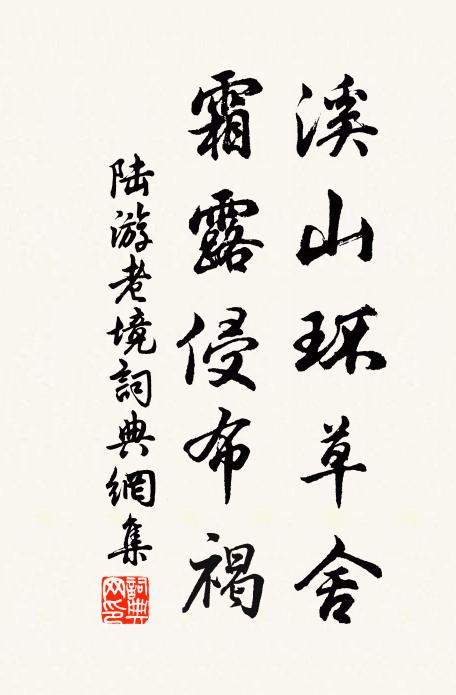 溪山环草舍
霜露侵布褐
陆游老境詞典網集
詞典
网印